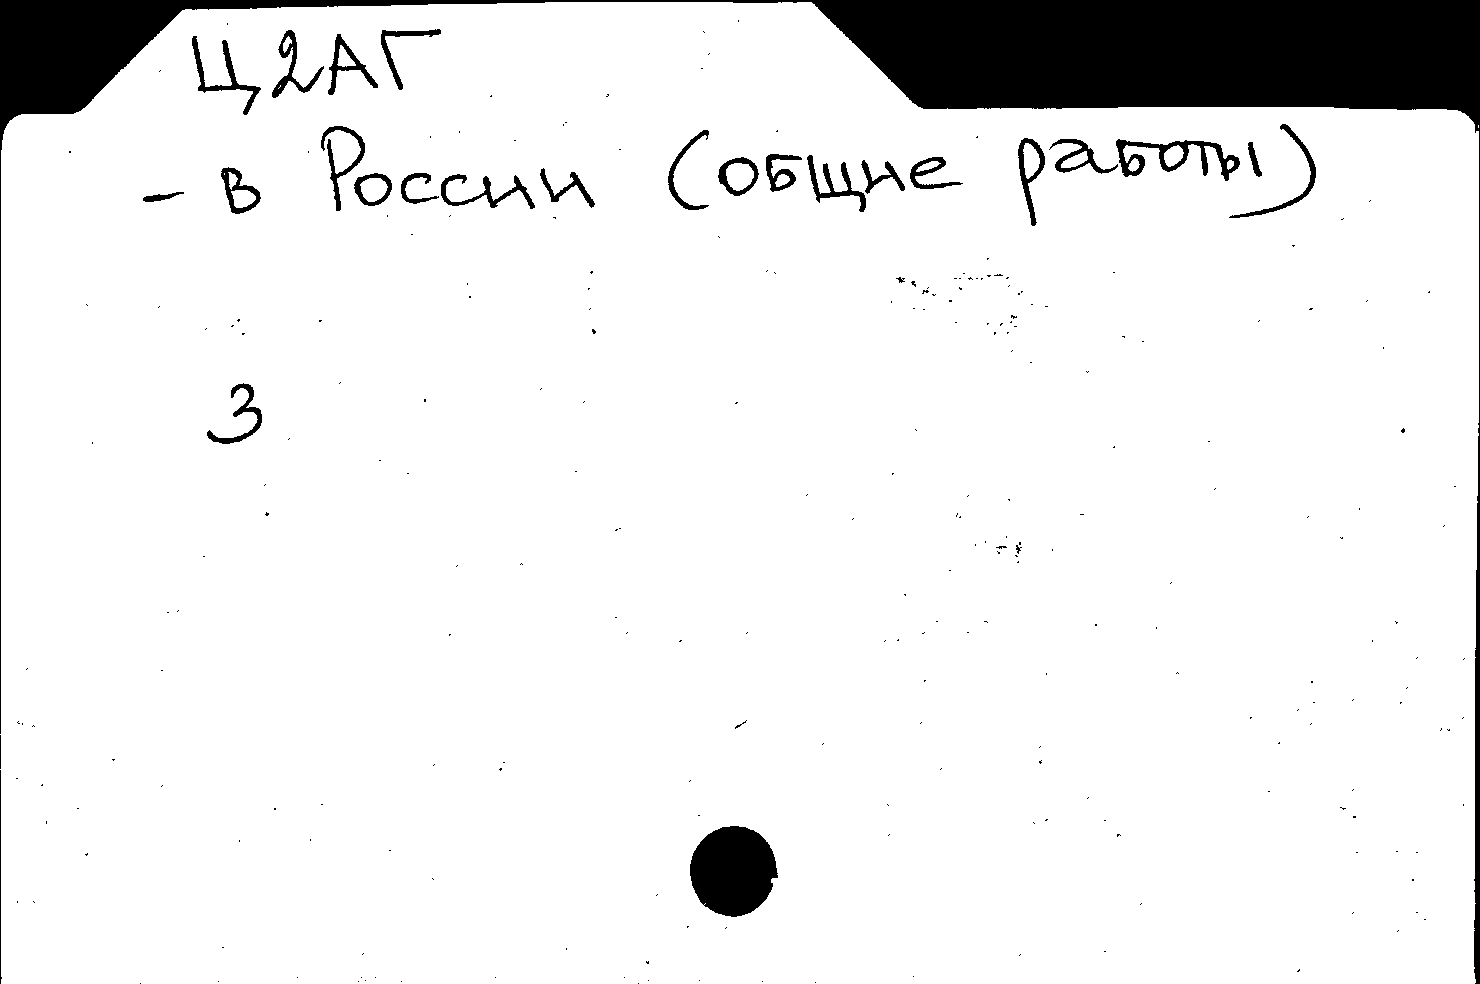 Ц2АГ
- в России (общие работы)
3